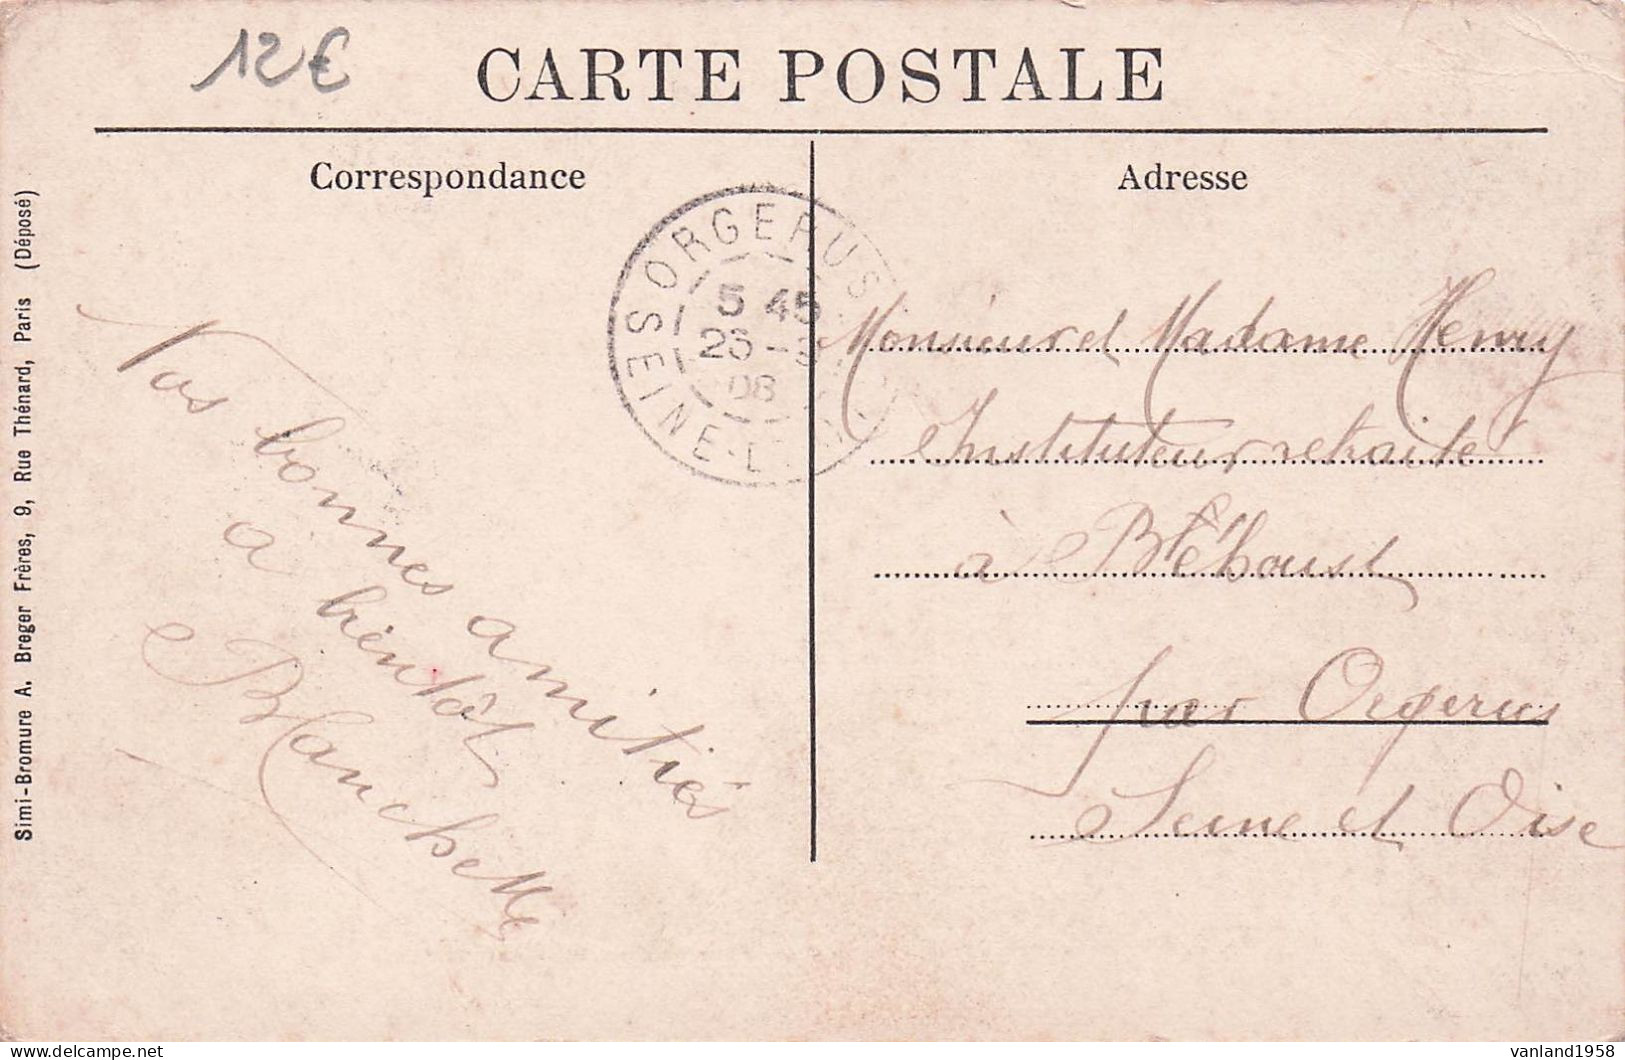 12€
CARTE POSTALE
Correspondance
Adresse
Simi-Bromure A. Breger Frères, 9, Rue Thénard, Paris (Déposé)
ORGERUS
5 45
26
08
SEINE-ET-OISE
Nos bonnes amitiés
a bientôt
Blanchette
Monsieur et Madame Henry
Instituteur retraite
à Béhoust
par Orgerus
Seine et Oise
vanland1958